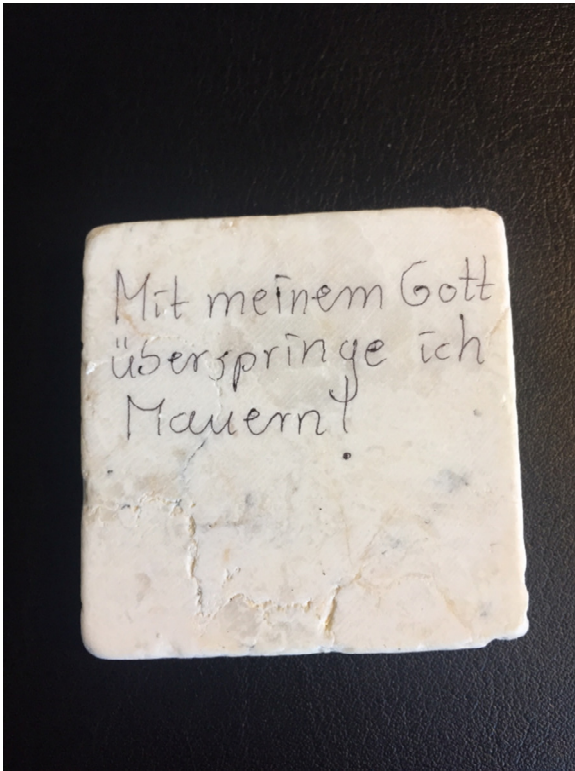 Mit meinem Gott
überspringe ich
Mauern!